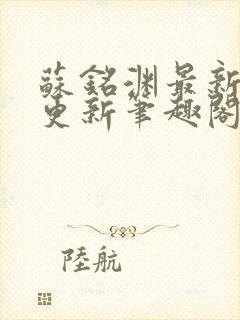 蘇銘渊最新
更新筆趣閣
陸航